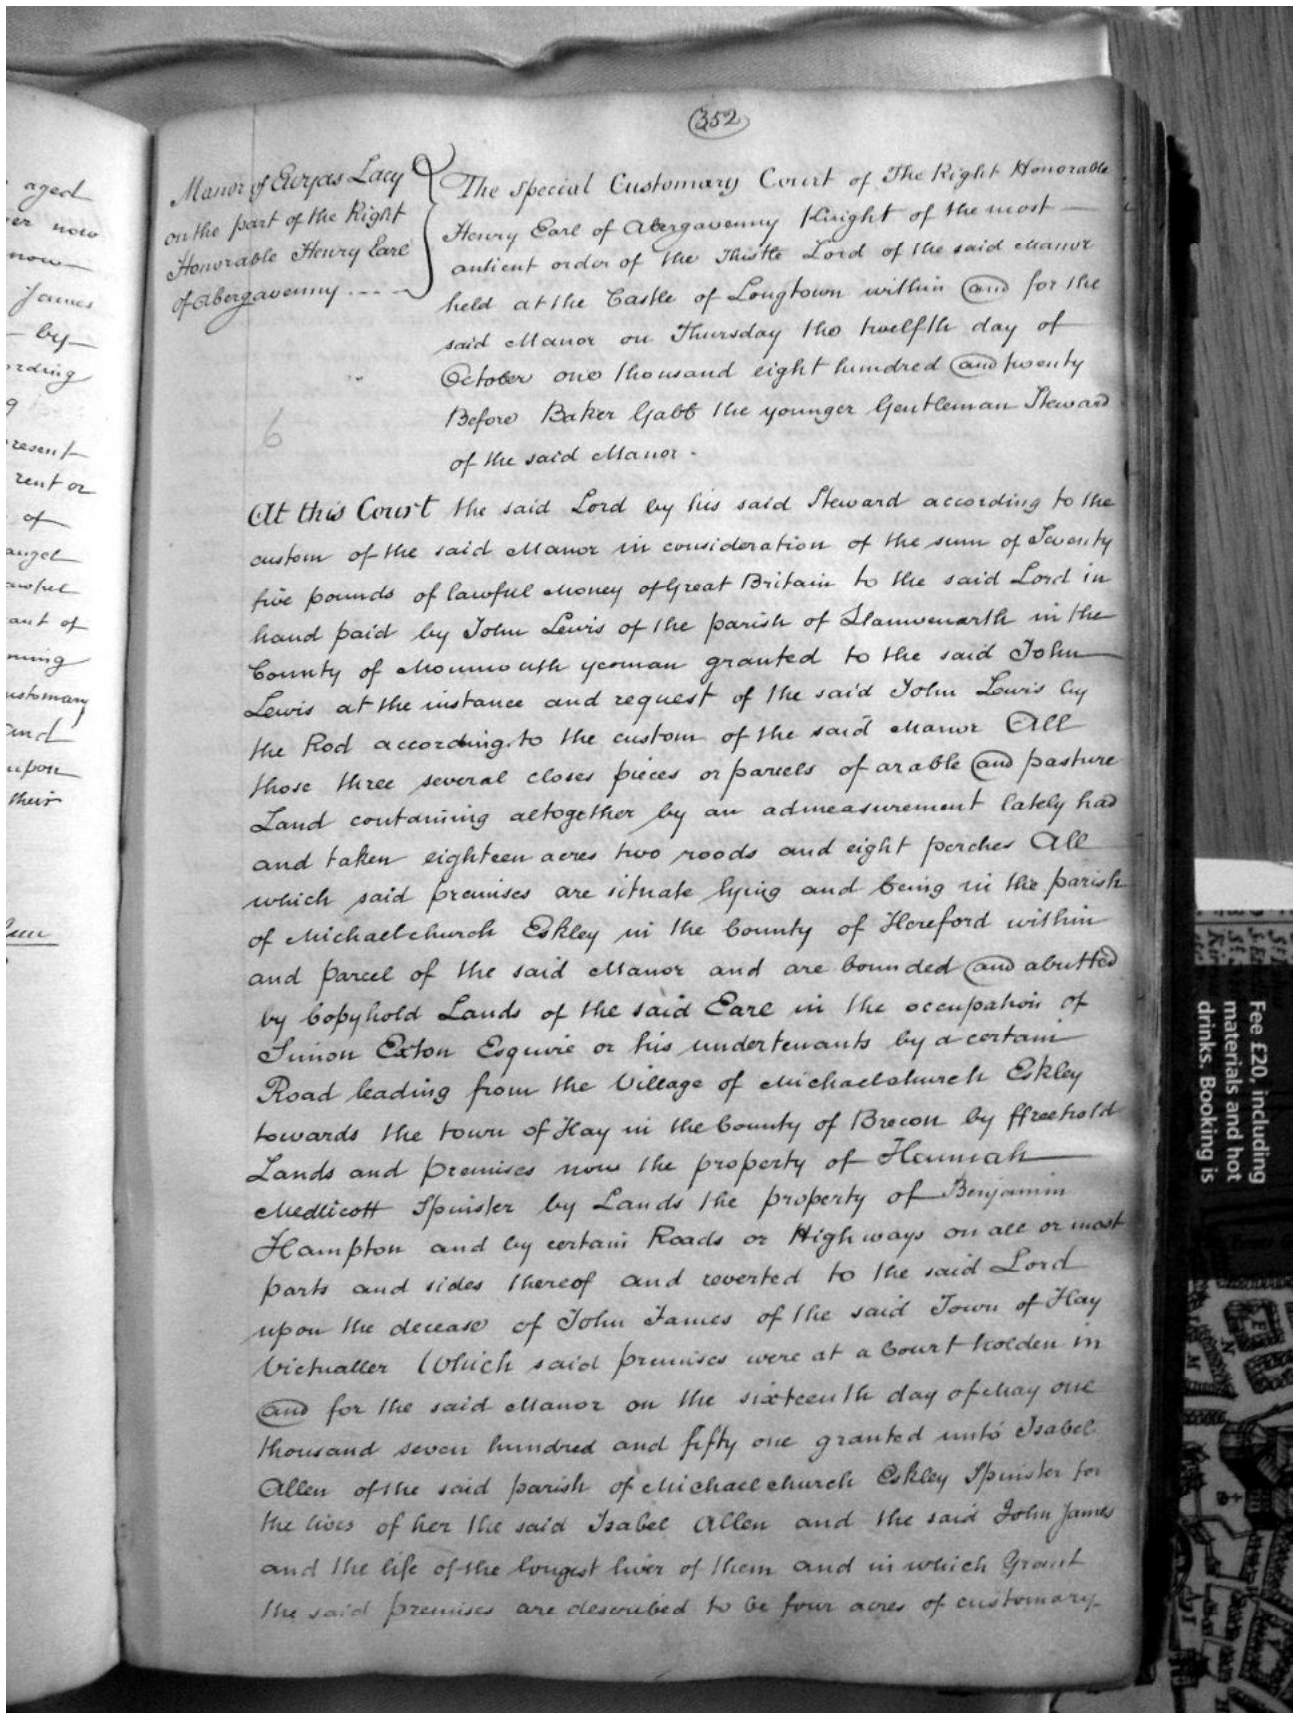 352
Manor of Ewyas Lacy
on the part of the Right
Honorable Henry Earl
of Abergavenny ----
The Special Customary Court of The Right Honorable
Henry Earl of Abergavenny Knight of the most
antient order of the Thistle Lord of the said Manor
held at the Castle of Longtown within and for the
said Manor on Thursday the twelfth day of
October one thousand eight hundred and twenty
Before Baker Gabb the younger Gentleman Steward
of the said Manor.
6
At this Court the said Lord by his said Steward according to the
custom of the said Manor in consideration of the sum of Seventy
five pounds of lawful Money of Great Britain to the said Lord in
hand paid by John Lewis of the parish of Llanwenarth in the
County of Monmouth yeoman granted to the said John
Lewis at the instance and request of the said John Lewis by
the Rod according to the custom of the said Manor All
those three several closes pieces or parcels of arable and pasture
Land containing altogether by an admeasurement lately had
and taken eighteen acres two roods and eight perches All
which said premises are situate lying and being in the parish
of Michaelchurch Eskley in the County of Hereford within
and parcel of the said Manor and are bounded and abutted
by Copyhold Lands of the said Earl in the occupation of
Simon Exton Esquire or his undertenants by a certain
Road leading from the Village of Michaelchurch Eskley
towards the town of Hay in the County of Brecon by ffreehold
Lands and premises now the property of Hannah
Medlicott Spinster by Lands the property of Benjamin
Hampton and by certain Roads or Highways on all or most
parts and sides thereof and reverted to the said Lord
upon the decease of John James of the said Town of Hay
Victualler (Which said premises were at a Court holden in
and for the said Manor on the sixteenth day of May one
thousand seven hundred and fifty one granted unto Isabel
Allen of the said parish of Michaelchurch Eskley Spinster for
the lives of her the said Isabel Allen and the said John James
and the life of the longest liver of them and in which Grant
the said premises are described to be four acres of customary
aged
now
now
James
by
resent
rent or
of
ant of
ustomary
and
upon
their
Fee £20, including
materials and hot
drinks. Booking is